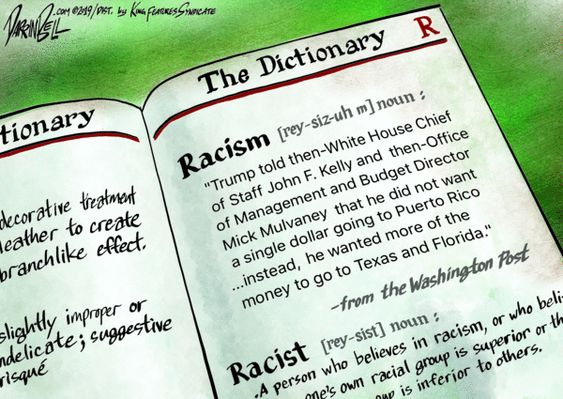 DARRINBELL.COM ©2019/DIST. by KING FEATURES SYNDICATE
tionary
decorative treatment
leather to create
branchlike effect.
slightly improper or
ndelicate; suggestive
risqué
The Dictionary R
Racism [rey-siz-uh m] noun :
"Trump told then-White House Chief
of Staff John F. Kelly and then-Office
of Management and Budget Director
Mick Mulvaney that he did not want
a single dollar going to Puerto Rico
...instead, he wanted more of the
money to go to Texas and Florida."
-from the Washington Post
Racist [rey-sist] noun :
.A person who believes in racism, or who beli-
one's own racial group is superior or th
is inferior to others.